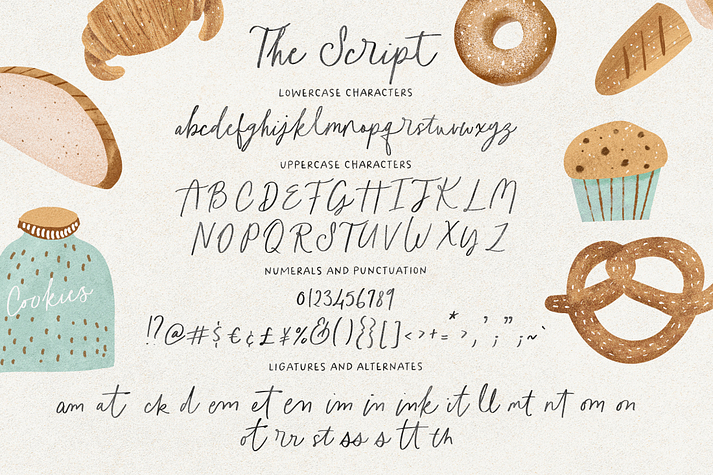 The Script
LOWERCASE CHARACTERS
abcdefghijklmnopqrstuvwxyz
UPPERCASE CHARACTERS
ABCDEFGHIJKLM
NOPQRSTUVWXYZ
NUMERALS AND PUNCTUATION
0123456789
!?@#$€¢£¥%&(){}[]<>+=*>,’;”;~`
Cookies
LIGATURES AND ALTERNATES
am at ck d em et en im in ink it ll mt nt om on
ot rr st ss s tt th